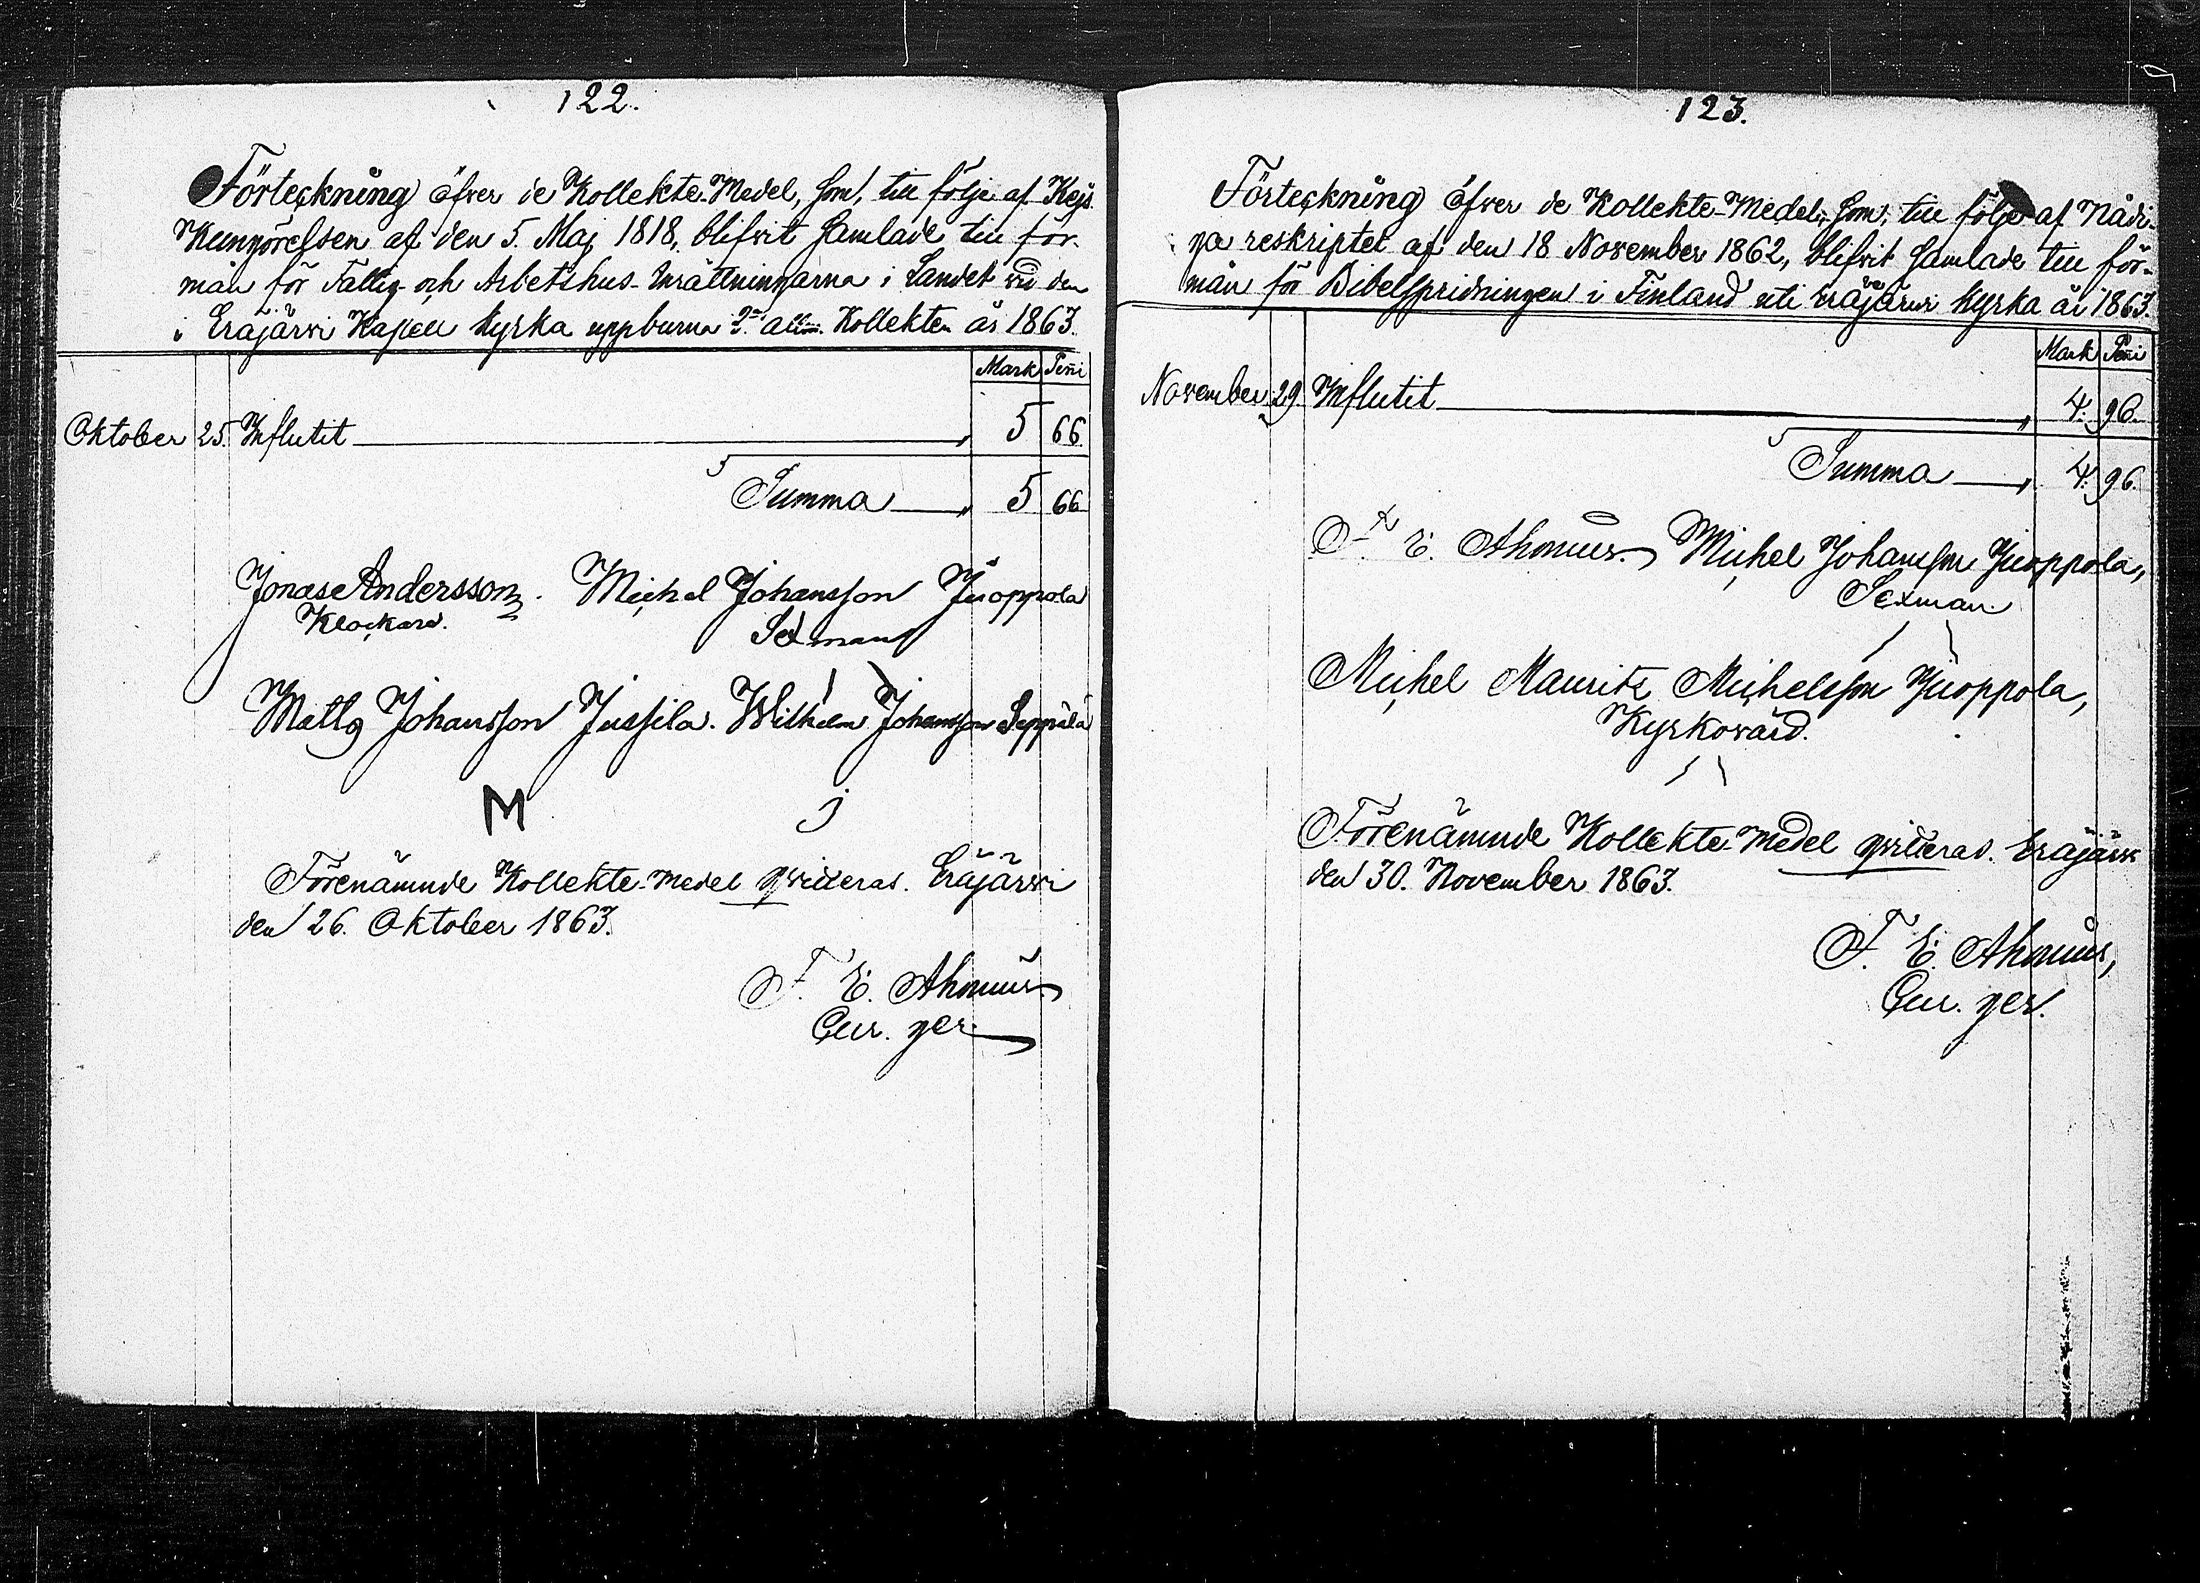 122.
Förteckning öfver de Kollekte-Medel, som, till följe af Kejs.
Kungörelsen af den 5. Maj 1818, blifvit samlade till för-
mån för Fattig- och Arbetshus-Inrättningarna i Landet vid den
i Eräjärvi Kapell kyrka uppburna 2:a allm. Kollekten år 1863.
Mark Peñi
Oktober 25. Influtit 5 66.
Summa 5 66
Jonas Andersson. Michel Johansson Juoppola
Klockare. Sexman
Matts Johansson Jussila. Wilhelm Johansson Seppälä
M J
Förenämnde Kollekte-Medel qvitteras. Eräjärvi
den 26. Oktober 1863.
F. E. Ahonius.
Cur. ger.
123.
Förteckning öfver de Kollekte-Medel, som, till följe af Nådi-
ga reskriptet af den 18 November 1862, blifvit samlade till för-
mån för Bibelspridningen i Finland uti Eräjärvi kyrka år 1863.
Mark Peñi
November 29. Influtit 4. 96.
Summa 4. 96.
F. E. Ahonius. Michel Johansson Juoppola,
Sexman.
Michel Mauritz Michelsson Juoppola,
Kyrkovärd.
Förenämnde Kollekte-Medel qvitteras. Eräjärvi
den 30. November 1863.
F. E. Ahonius,
Cur. ger.